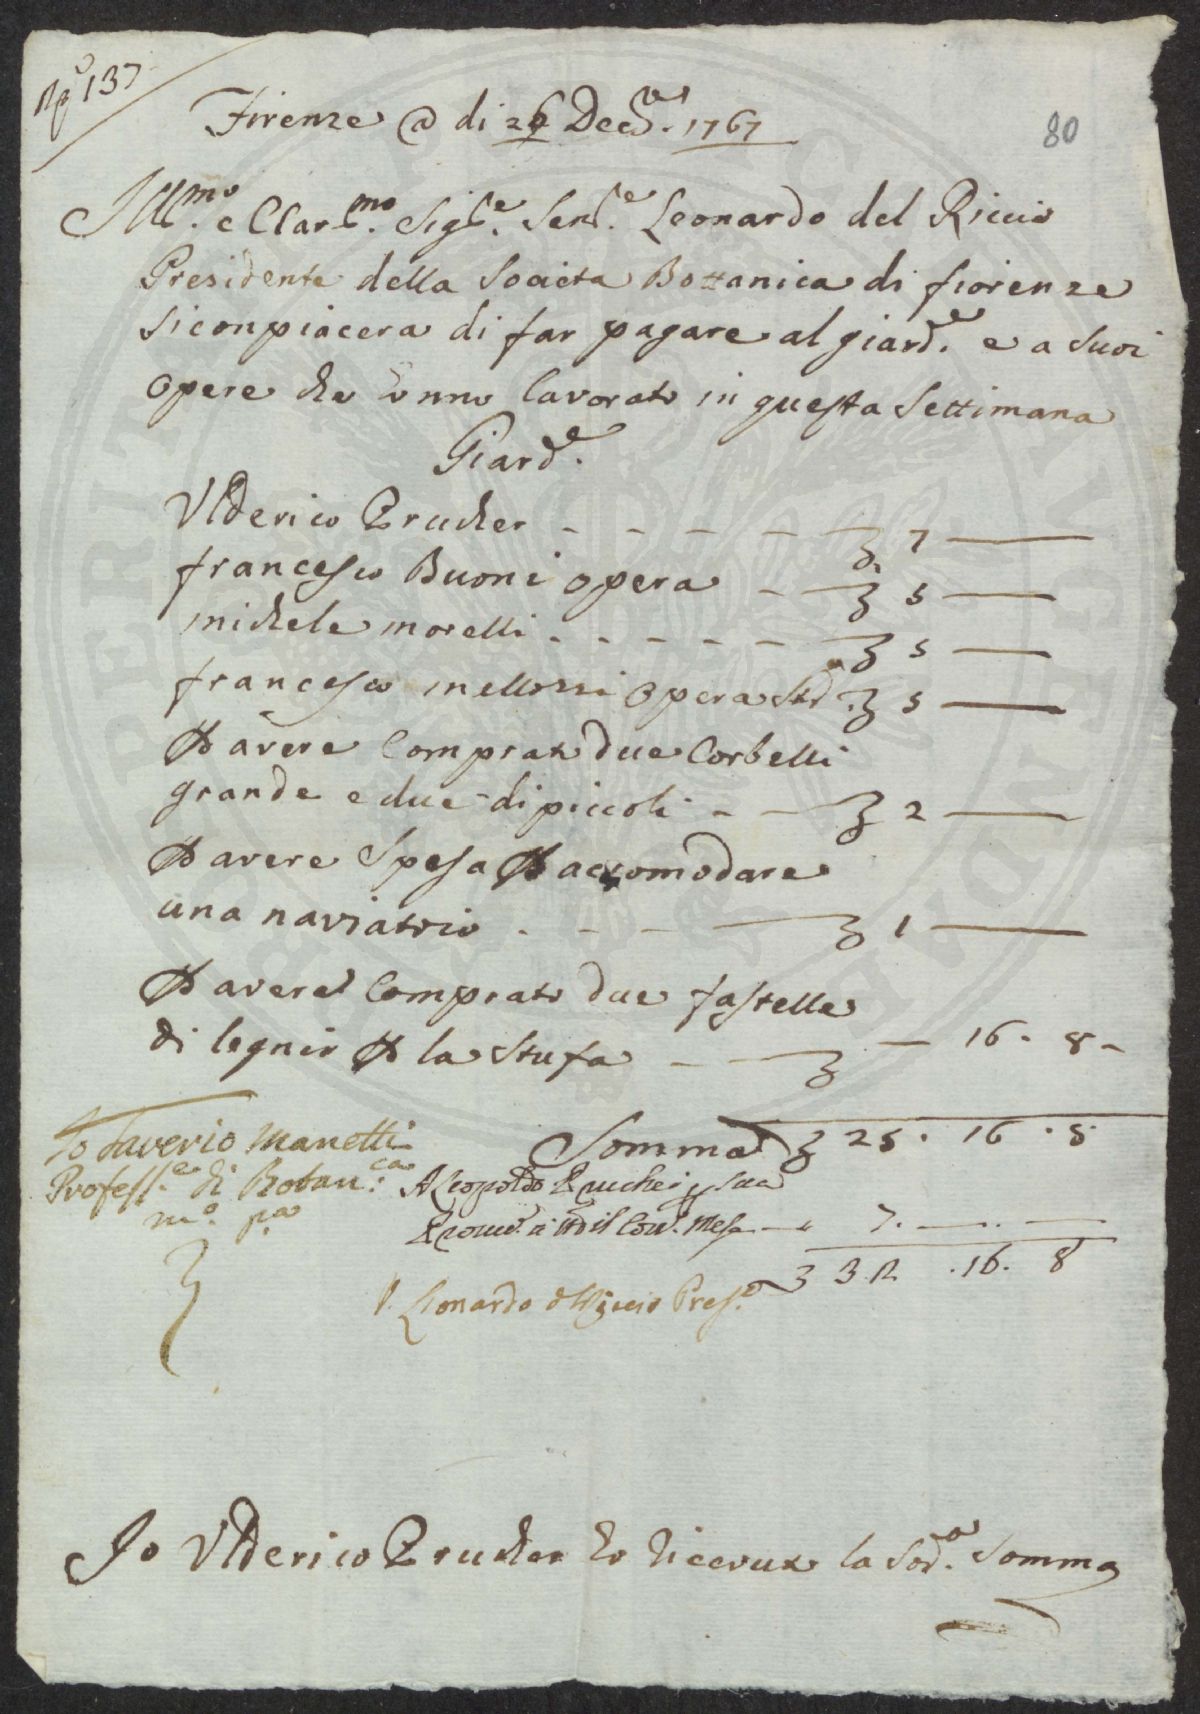 N° 137
80
Firenze @ di 26 Dec.re 1767
Ill.mo e Clar.mo Sig.re Sen.re Leonardo del Riccio
Presidente della Societa Bottanica di fiorenze
si conpiacera di far pagare al giard.e e a suoi
opere che anno lavorato in questa Settimana
Giard.e
Vlderico Prucher - - - - - 7 —
francesco Buoni opera - 5 —
michele morelli - - - - - 5 —
francesco mellozzi opera 5 —
P avere Comprato due Corbelli
grande e due di piccoli - 2 —
P avere Spesa P accomodare
una naviatoio - - - 1 —
P avere Comprato due fastelle
di legnio P la Stufa - — 16 - 8 -
Somma 25 . 16 . 8
Io Saverio Manetti
Profess.e di Botan.ca
m.o p.a
A Leopoldo Prucher p sua
Provv. il Cor. Mese — 7. — . —
32 . 16 . 8
Lionardo del Riccio Pres.e
Io Vlderico Prucher ho riceuto la sod.a somma